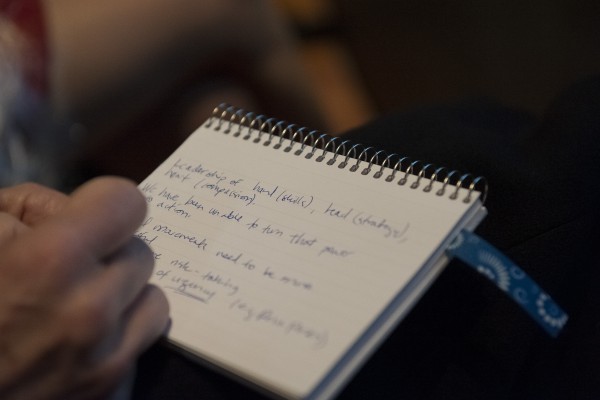 Leadership of hand (skills), head (strategy),
heart (compassion).
We have been unable to turn that power
action.
movements need to be more
risk-taking
of urgency (e.g.